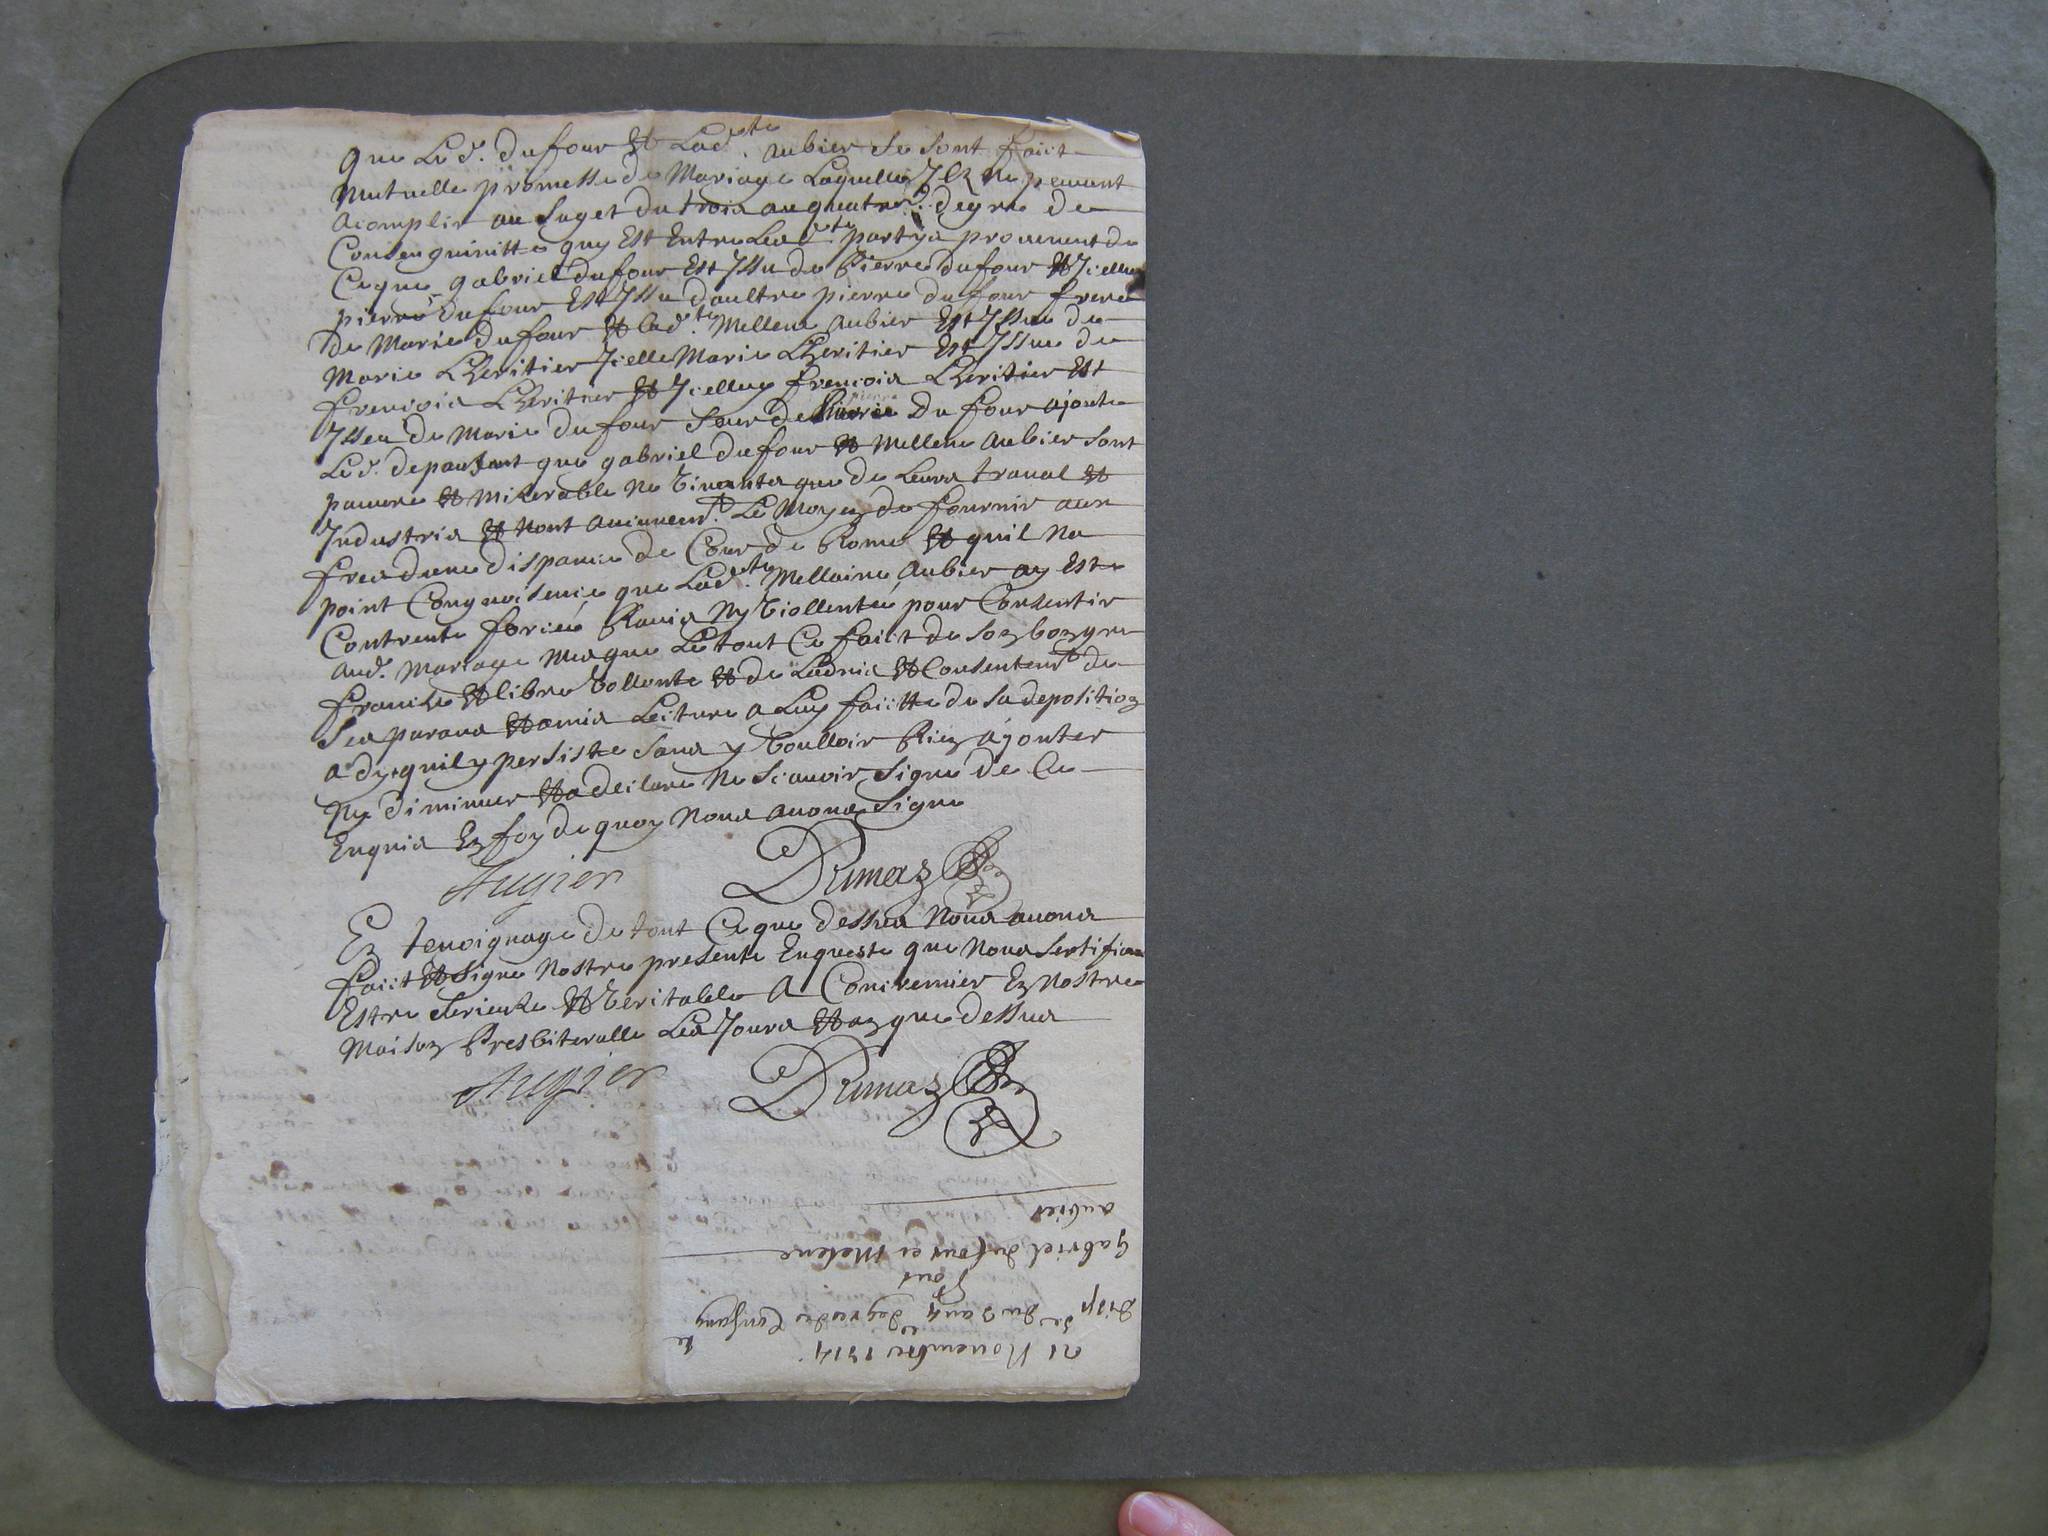 que Led. dufour et Lad.te aubier se sont faict
mutuelle promesse de Mariage Laquelle Jlz ne peuuent
acomplir au suget du trois au quatre.. degre de
Consenguinitte quy Est Entre Lesd.te partys prouenent de
Ceque gabriel dufour Est Jssu de Pierre dufour et Jcelluy
pierre dufour Est Jssu daultre pierre dufour frere
de Marie dufour et lad.te Mellene aubier Est Jssue de
Marie Lheritier Jcelle Marie Lheritier Est Jssue de
frencois Lheritier et Jcelluy frencois Lheritier Est
Jssu de Marie dufour seur de Pierre Dufour ajoute
Led. depausant que gabriel dufour et Mellene aubier sont
pauure et miserable ne viuants que de Leurs traual et
Industris et nont aucunem.t Le Moyen de fournir aux
fres dune dispance de Cour de Rome et quil na
point Congnoisence que Lad.te Mellaine Aubier ay Este
Contrente forcée Rauis ny viollentée pour Consentir
aud. Mariage mes que Le tout Ce faict de son bon gre
franche et libre vollonte et de Ladvis et Consentem.t de
Ses parans et amis Lecture a Luy faicte de sa deposition
a dy quil y persiste sans y voulloir Rien ajouter
ny diminuer et a declare ne scauoir signe de Ce
Enquis En foy de quoy Nous auons Signe
Augier Dumas
En temoignage de tout Ceque dessus Nous auons
faict et signe nostre presente Enqueste que Nous sertifions
Estre serieuse et veritable a Concremier En nostre
Maison Presbiteralle Les Jours et an que dessus
Augier Dumas
21 Nouembre 1714
disp.se du 3 au 4.e degre de Consang.te
pour
gabriel dufour et Melene
aubier